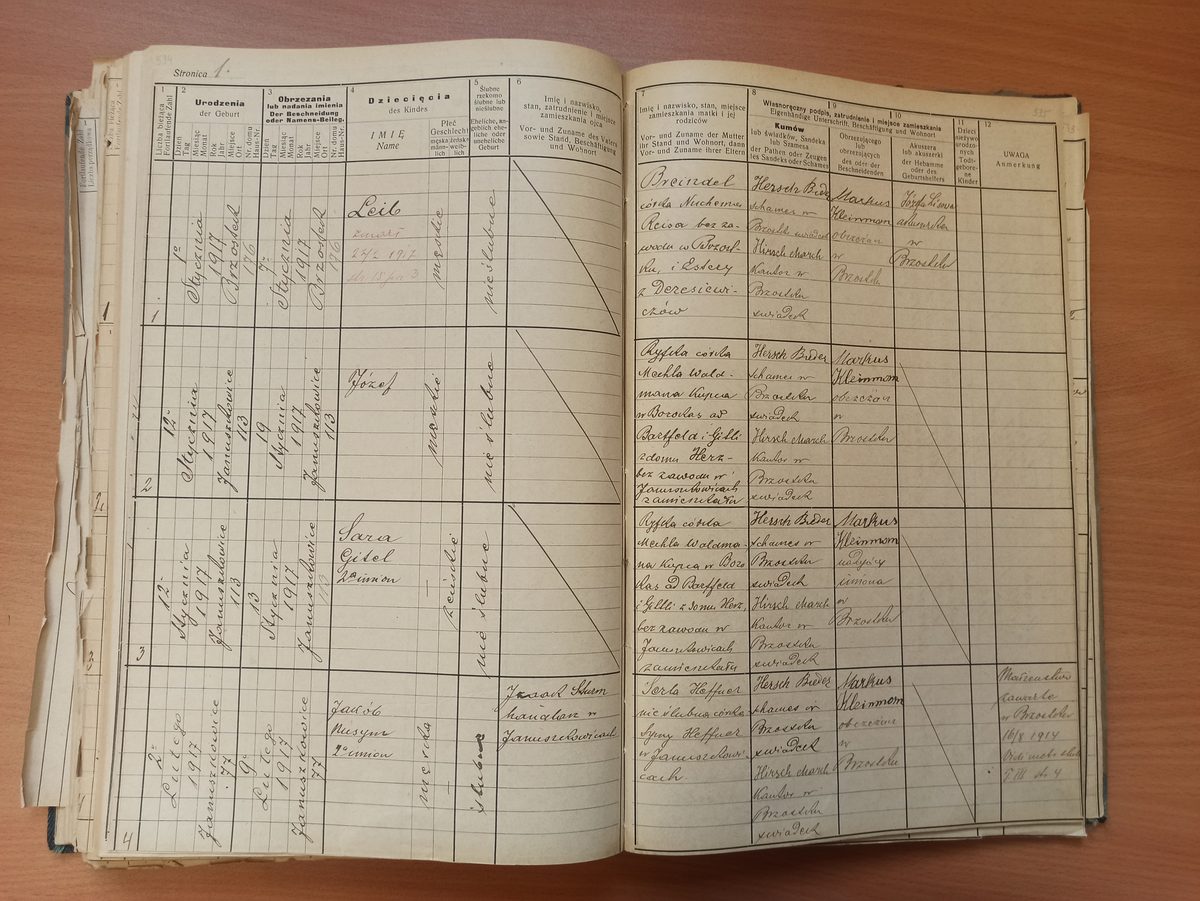 Stronica 1.
1
Liczba bieżąca
Fortlaufende Zahl
2
Urodzenia
der Geburt
Dzień
Tag
Miesiąc
Monat
Rok
Jahr
Miejsce
Ort
Nr. domu
Haus-Nr.
3
Obrzezania
lub nadania imienia
Der Beschneidung
oder Namens-Beileg.
Dzień
Tag
Miesiąc
Monat
Rok
Jahr
Miejsce
Ort
Nr. domu
Haus-Nr.
4
Dziecięcia
des Kindes
IMIĘ
Name
Płeć
Geschlecht
męska
männ-
lich
żeńska
weiblich
5
Ślubne
rzekomo
ślubne lub
nieślubne
Eheliche, an-
geblich ehe-
liche oder
uneheliche
Geburt
6
Imię i nazwisko,
stan, zatrudnienie i miejsce
zamieszkania ojca
Vor- und Zuname des Vaters
sowie Stand, Beschäftigung
und Wohnort
7
Imię i nazwisko, stan, miejsce
zamieszkania matki i jej
rodziców
Vor- und Zuname der Mutter
ihr Stand und Wohnort, dann
Vor- und Zuname ihrer Eltern
8
9
Własnoręczny podpis, zatrudnienie i miejsce zamieszkania
Eigenhändige Unterschrift, Beschäftigung und Wohnort
Kumów
lub świadków, Sandeka
lub Szamesa
der Pathen oder Zeugen
des Sandeks oder Schames
Obrzezającego
lub
obrzezających
des oder der
Beschneidenden
10
Akuszera
lub akuszerki
der Hebamme
oder des
Geburtshelfers
11
Dzieci
nieżywo
urodzo-
nych
Todt-
gebore-
ne
Kinder
12
UWAGA
Anmerkung
1
1
Stycznia
1917
Brzostek
176
7
Stycznia
1917
Brzostek
176
Leib
zmarł
1917
męskie
nieślubne
Breindel
córka Nuchema
Reisa bez za-
wodu w Brzost-
ku, i Estery
z Deresiewi-
czów
Hersch Bieder
schames w
Brzostku świadek
Hirsch March
Kantor w
Brzostku
świadek
Markus
Kleinmom
obrzezan
w
Brzostku
akuszerka
w
Brzostku
2
12
Stycznia
1917
Januszkowice
113
19
Stycznia
1917
Januszkowice
113
Józef
męskie
nieślubne
Ryfka córka
Mechla Wald-
mana Kupca
ad
Bartfeld i Gitli
z domu Herz-
bez zawodu w
Januszkowicach
zamieszkała
Hersch Bieder
schames w
Brzostku
świadek
Hirsch March
Kantor w
Brzostku
świadek
Markus
Kleinmom
obrzezan
w
Brzostku
3
12
Stycznia
1917
Januszkowice
113
13
Stycznia
1917
Januszkowice
113
Sara
Gitel
2ga imion
żeńskie
nieślubne
Ryfka córka
Mechla Waldma-
na Kupca w
ad Bartfeld
i Gittli z domu Herz,
bez zawodu w
Januszkowicach
zamieszkała
Hersch Bieder
schames w
Brzostku
świadek
Hirsch March
Kantor w
Brzostku
świadek
Markus
Kleinmom
nadający
imiona
w
Brzostku
4
2
Lutego
1917
Januszkowice
77
9
Lutego
1917
Januszkowice
77
Jakób
2ga imion
męska
ślubne
Izaak Sturm
handlarz w
Januszkowicach
Serla Heffner
nieślubna córka
Heffner
w Januszkowi-
cach.
Hersch Bieder
schames w
Brzostku
świadek
Hirsch March
Kantor w
Brzostku
świadek
Markus
Kleinmom
obrzezan
w
Brzostku
Małżeństwo
zawarte
w Brzostku
16/8 1914